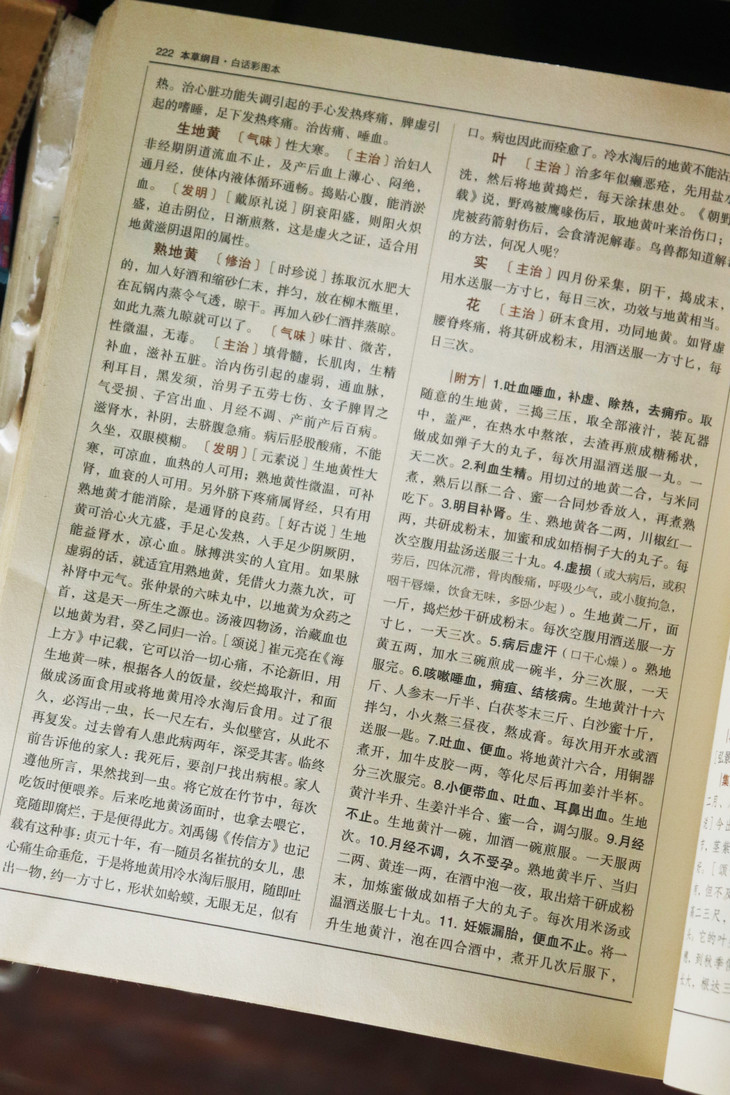 222 本草纲目·白话彩图本
热。治心脏功能失调引起的手心发热疼痛，脾虚引
起的嗜睡，足下发热疼痛。治齿痛、唾血。
生地黄 〔气味〕性大寒。〔主治〕治妇人
非经期阴道流血不止，及产后血上薄心、闷绝，
通月经，使体内液体循环通畅。捣贴心腹，能消淤
血。〔发明〕［戴原礼说］阴衰阳盛，则阳火炽
盛，迫击阴位，日渐煎熬，这是虚火之证，适合用
地黄滋阴退阳的属性。
熟地黄 〔修治〕［时珍说］拣取沉水肥大
的，加入好酒和缩砂仁末，拌匀，放在柳木甑里，
在瓦锅内蒸令气透，晾干。再加入砂仁酒拌蒸晾。
如此九蒸九晾就可以了。〔气味〕味甘、微苦，
性微温，无毒。〔主治〕填骨髓，长肌肉，生精
补血，滋补五脏。治内伤引起的虚弱，通血脉，
利耳目，黑发须，治男子五劳七伤、女子脾胃之
气受损、子宫出血、月经不调、产前产后百病。
滋肾水，补阴，去脐腹急痛。病后胫股酸痛，不能
久坐，双眼模糊。〔发明〕［元素说］生地黄性大
寒，可凉血，血热的人可用；熟地黄性微温，可补
肾，血衰的人可用。另外脐下疼痛属肾经，只有用
熟地黄才能消除，是通肾的良药。［好古说］生地
黄可治心火亢盛，手足心发热，入手足少阴厥阴，
能益肾水，凉心血。脉搏洪实的人宜用。如果脉
虚弱的话，就适宜用熟地黄，凭借火力蒸九次，可
补肾中元气。张仲景的六味丸中，以地黄为众药之
首，这是天一所生之源也。汤液四物汤，治藏血也
以地黄为君，癸乙同归一治。［颂说］崔元亮在《海
上方》中记载，它可以治一切心痛，不论新旧，用
生地黄一味，根据各人的饭量，绞烂捣取汁，和面
做成汤面食用或将地黄用冷水淘后食用。过了很
久，必泻出一虫，长一尺左右，头似壁宫，从此不
再复发。过去曾有人患此病两年，深受其害。临终
前告诉他的家人：我死后，要剖尸找出病根。家人
遵他所言，果然找到一虫。将它放在竹节中，每次
吃饭时便喂养。后来吃地黄汤面时，也拿去喂它，
竟随即腐烂，于是便得此方。刘禹锡《传信方》也记
载有这种事：贞元十年，有一随员名崔抗的女儿，患
心痛生命垂危，于是将地黄用冷水淘后服用，随即吐
出一物，约一方寸匕，形状如蛤蟆，无眼无足，似有
口。病也因此而痊愈了。冷水淘后的地黄不能沾
叶 〔主治〕治多年似癞恶疮，先用盐水
洗，然后将地黄捣烂，每天涂抹患处。《朝野
载》说，野鸡被鹰喙伤后，取地黄叶来治伤口；
虎被药箭射伤后，会食清泥解毒。鸟兽都知道解
的方法，何况人呢？
实 〔主治〕四月份采集，阴干，捣成末，
用水送服一方寸匕，每日三次，功效与地黄相当。
花 〔主治〕研末食用，功同地黄。如肾虚
腰脊疼痛，将其研成粉末，用酒送服一方寸匕，每
日三次。
|附方| 1.吐血唾血，补虚、除热，去痈疖。取
随意的生地黄，三捣三压，取全部液汁，装瓦器
中，盖严，在热水中熬浓，去渣再煎成糖稀状，
做成如弹子大的丸子，每次用温酒送服一丸。一
天二次。2.利血生精。用切过的地黄二合，与米同
煮，熟后以酥二合、蜜一合同炒香放人，再煮熟
吃下。3.明目补肾。生、熟地黄各二两，川椒红一
两，共研成粉末，加蜜和成如梧桐子大的丸子。每
次空腹用盐汤送服三十丸。4.虚损（或大病后，或积
劳后，四体沉滞，骨肉酸痛，呼吸少气，或小腹拘急，
咽干唇燥，饮食无味，多卧少起）。生地黄二斤，面
一斤，捣烂炒干研成粉末。每次空腹用酒送服一方
寸匕，一天三次。5.病后虚汗（口干心燥）。熟地
黄五两，加水三碗煎成一碗半，分三次服，一天
服完。6.咳嗽唾血，痈疽、结核病。生地黄汁十六
斤、人参末一斤半、白茯苓末三斤、白沙蜜十斤，
拌匀，小火熬三昼夜，熬成膏。每次用开水或酒
送服一匙。7.吐血、便血。将地黄汁六合，用铜器
煮开，加牛皮胶一两，等化尽后再加姜汁半杯。
分三次服完。8.小便带血、吐血、耳鼻出血。生地
黄汁半升、生姜汁半合、蜜一合，调匀服。9.月经
不止。生地黄汁一碗，加酒一碗煎服。一天服两
次。10.月经不调，久不受孕。熟地黄半斤、当归
二两、黄连一两，在酒中泡一夜，取出焙干研成粉
末，加炼蜜做成如梧子大的丸子。每次用米汤或
温酒送服七十丸。11. 妊娠漏胎，便血不止。将一
升生地黄汁，泡在四合酒中，煮开几次后服下，